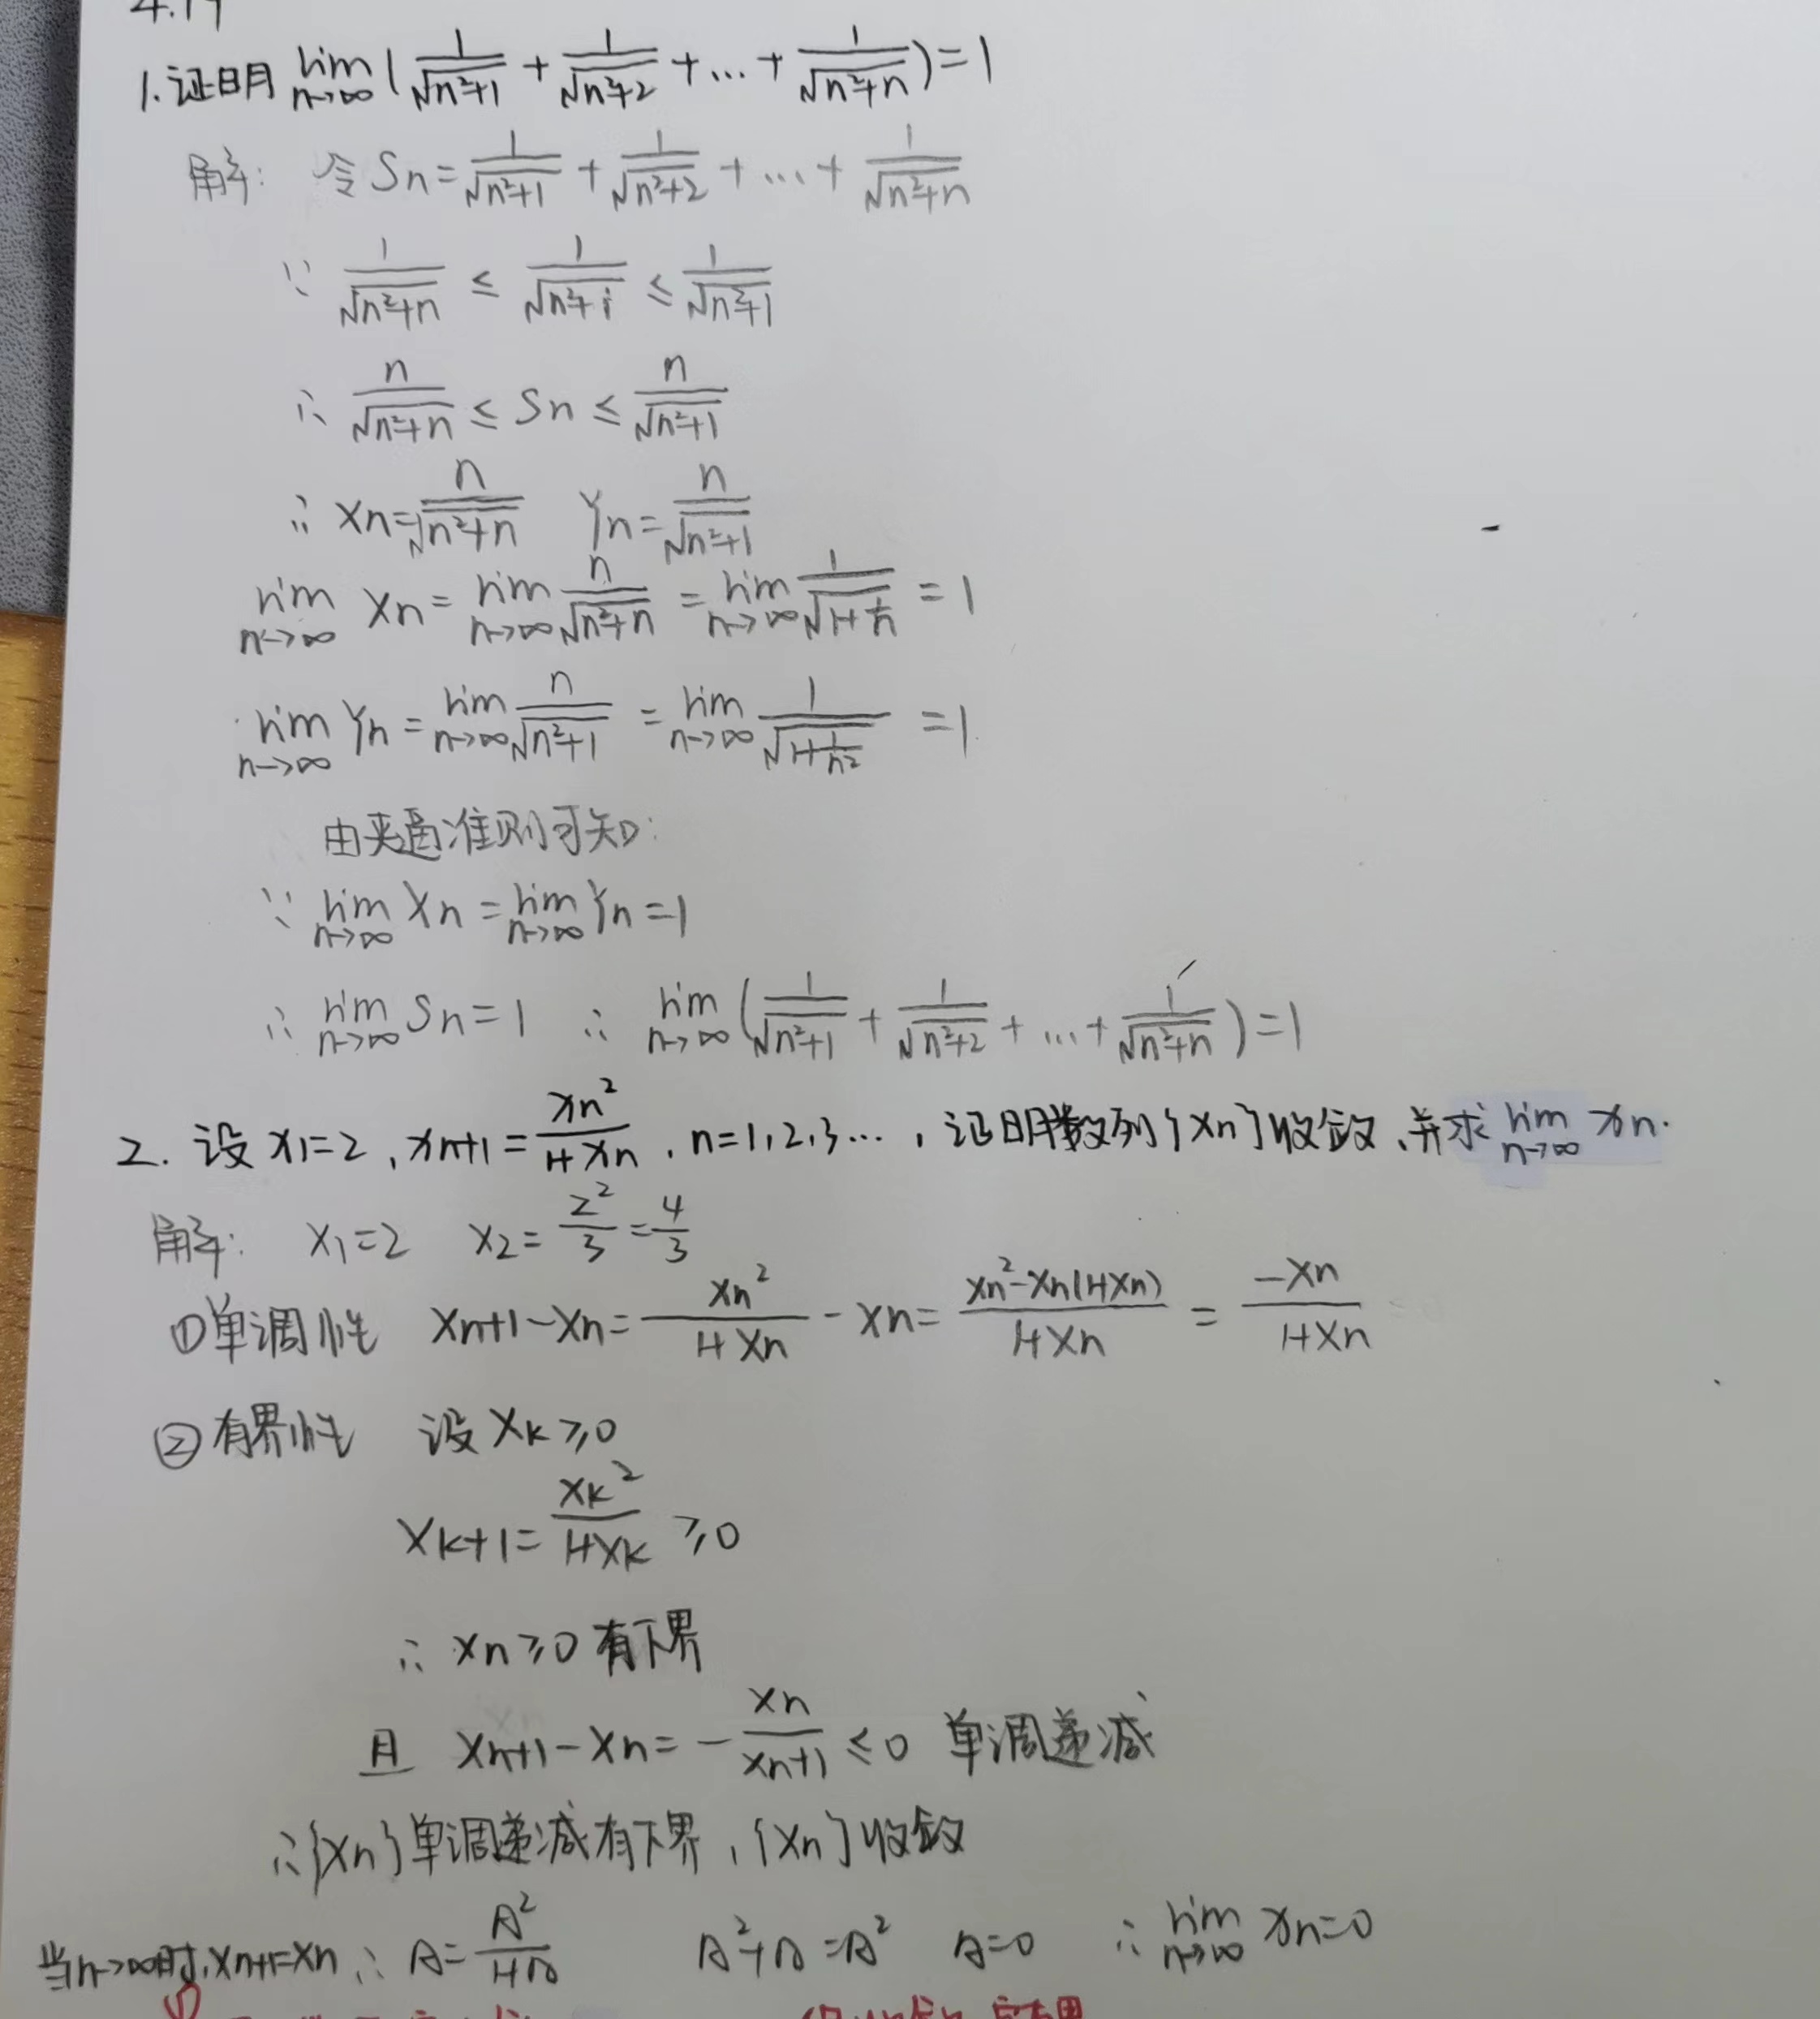 4.19
1.证明 lim n→∞ (1/√(n²+1) + 1/√(n²+2) + … + 1/√(n²+n)) = 1
解: 令 Sn = 1/√(n²+1) + 1/√(n²+2) + … + 1/√(n²+n)
∵ 1/√(n²+n) ≤ 1/√(n²+i) ≤ 1/√(n²+1)
∴ n/√(n²+n) ≤ Sn ≤ n/√(n²+1)
∴ Xn = n/√(n²+n) Yn = n/√(n²+1)
lim n→∞ Xn = lim n→∞ n/√(n²+n) = lim n→∞ 1/√(1+1/n) = 1
lim n→∞ Yn = lim n→∞ n/√(n²+1) = lim n→∞ 1/√(1+1/n²) = 1
由夹逼准则可知:
∵ lim n→∞ Xn = lim n→∞ Yn = 1
∴ lim n→∞ Sn = 1 ∴ lim n→∞ (1/√(n²+1) + 1/√(n²+2) + … + 1/√(n²+n)) = 1
2. 设 x₁=2, xn+1 = xn²/(1+xn), n=1,2,3…, 证明数列{xn}收敛,并求 lim n→∞ xn.
解: X₁=2 X₂ = 2²/3 = 4/3
①单调性 Xn+1 - Xn = Xn²/(1+Xn) - Xn = (Xn²-Xn(1+Xn))/(1+Xn) = -Xn/(1+Xn)
②有界性 设 Xk ≥ 0
Xk+1 = Xk²/(1+Xk) ≥ 0
∴ Xn ≥ 0 有下界
且 Xn+1 - Xn = - Xn/(Xn+1) ≤ 0 单调递减
∴{Xn}单调递减有下界,{Xn}收敛
当n→∞时,Xn+1=Xn ∴ A = A²/(1+A) A²+A=A² A=0 ∴ lim n→∞ xn=0